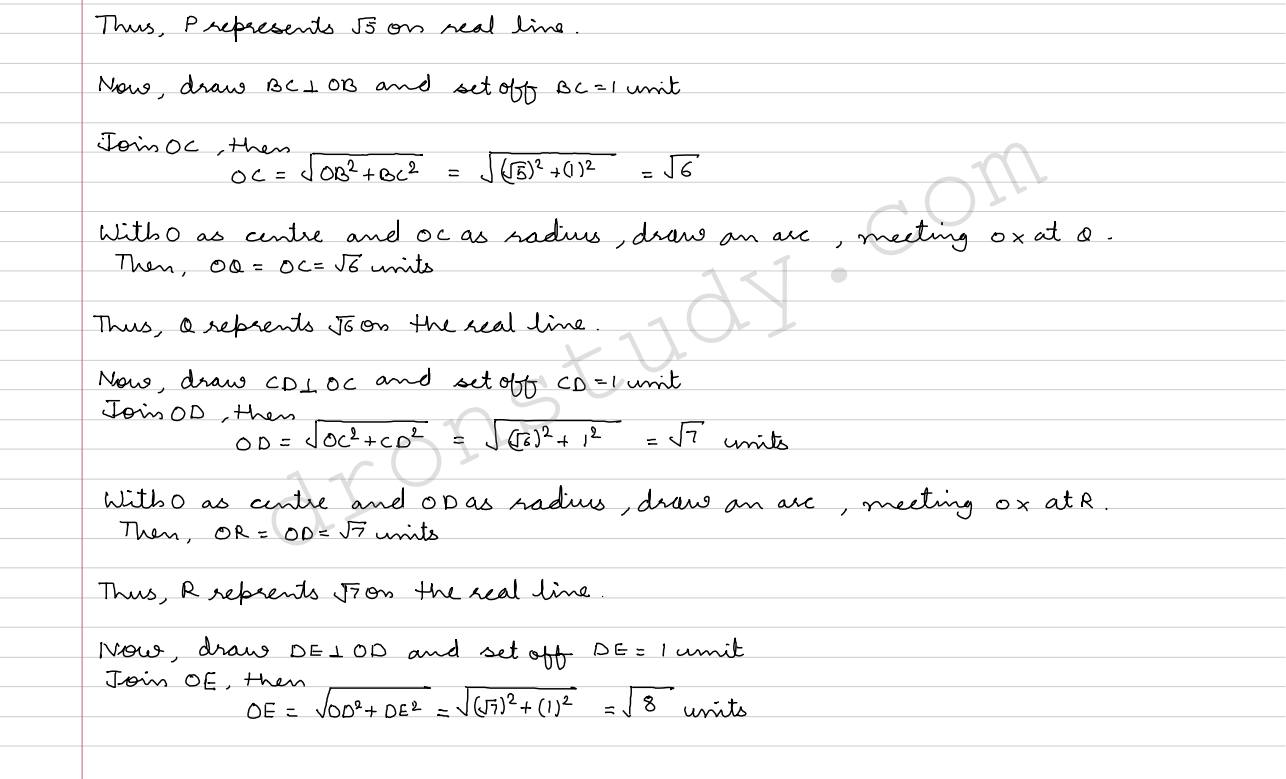 Thus, P represents √5 on real line.
Now, draw BC⊥OB and set off BC=1 unit
Join OC, then
OC = √OB²+BC² = √(√5)²+(1)² = √6
With O as centre and OC as radius, draw an arc, meeting OX at Q.
Then, OQ = OC = √6 units
Thus, Q reprents √6 on the real line.
Now, draw CD⊥OC and set off CD=1 unit
Join OD, then
OD = √OC²+CD² = √(√6)²+1² = √7 units
With O as centre and OD as radius, draw an arc, meeting OX at R.
Then, OR = OD = √7 units
Thus, R reprents √7 on the real line.
Now, draw DE⊥OD and set off DE = 1 unit
Join OE, then
OE = √OD²+DE² = √(√7)²+(1)² = √8 units
dronstudy.com